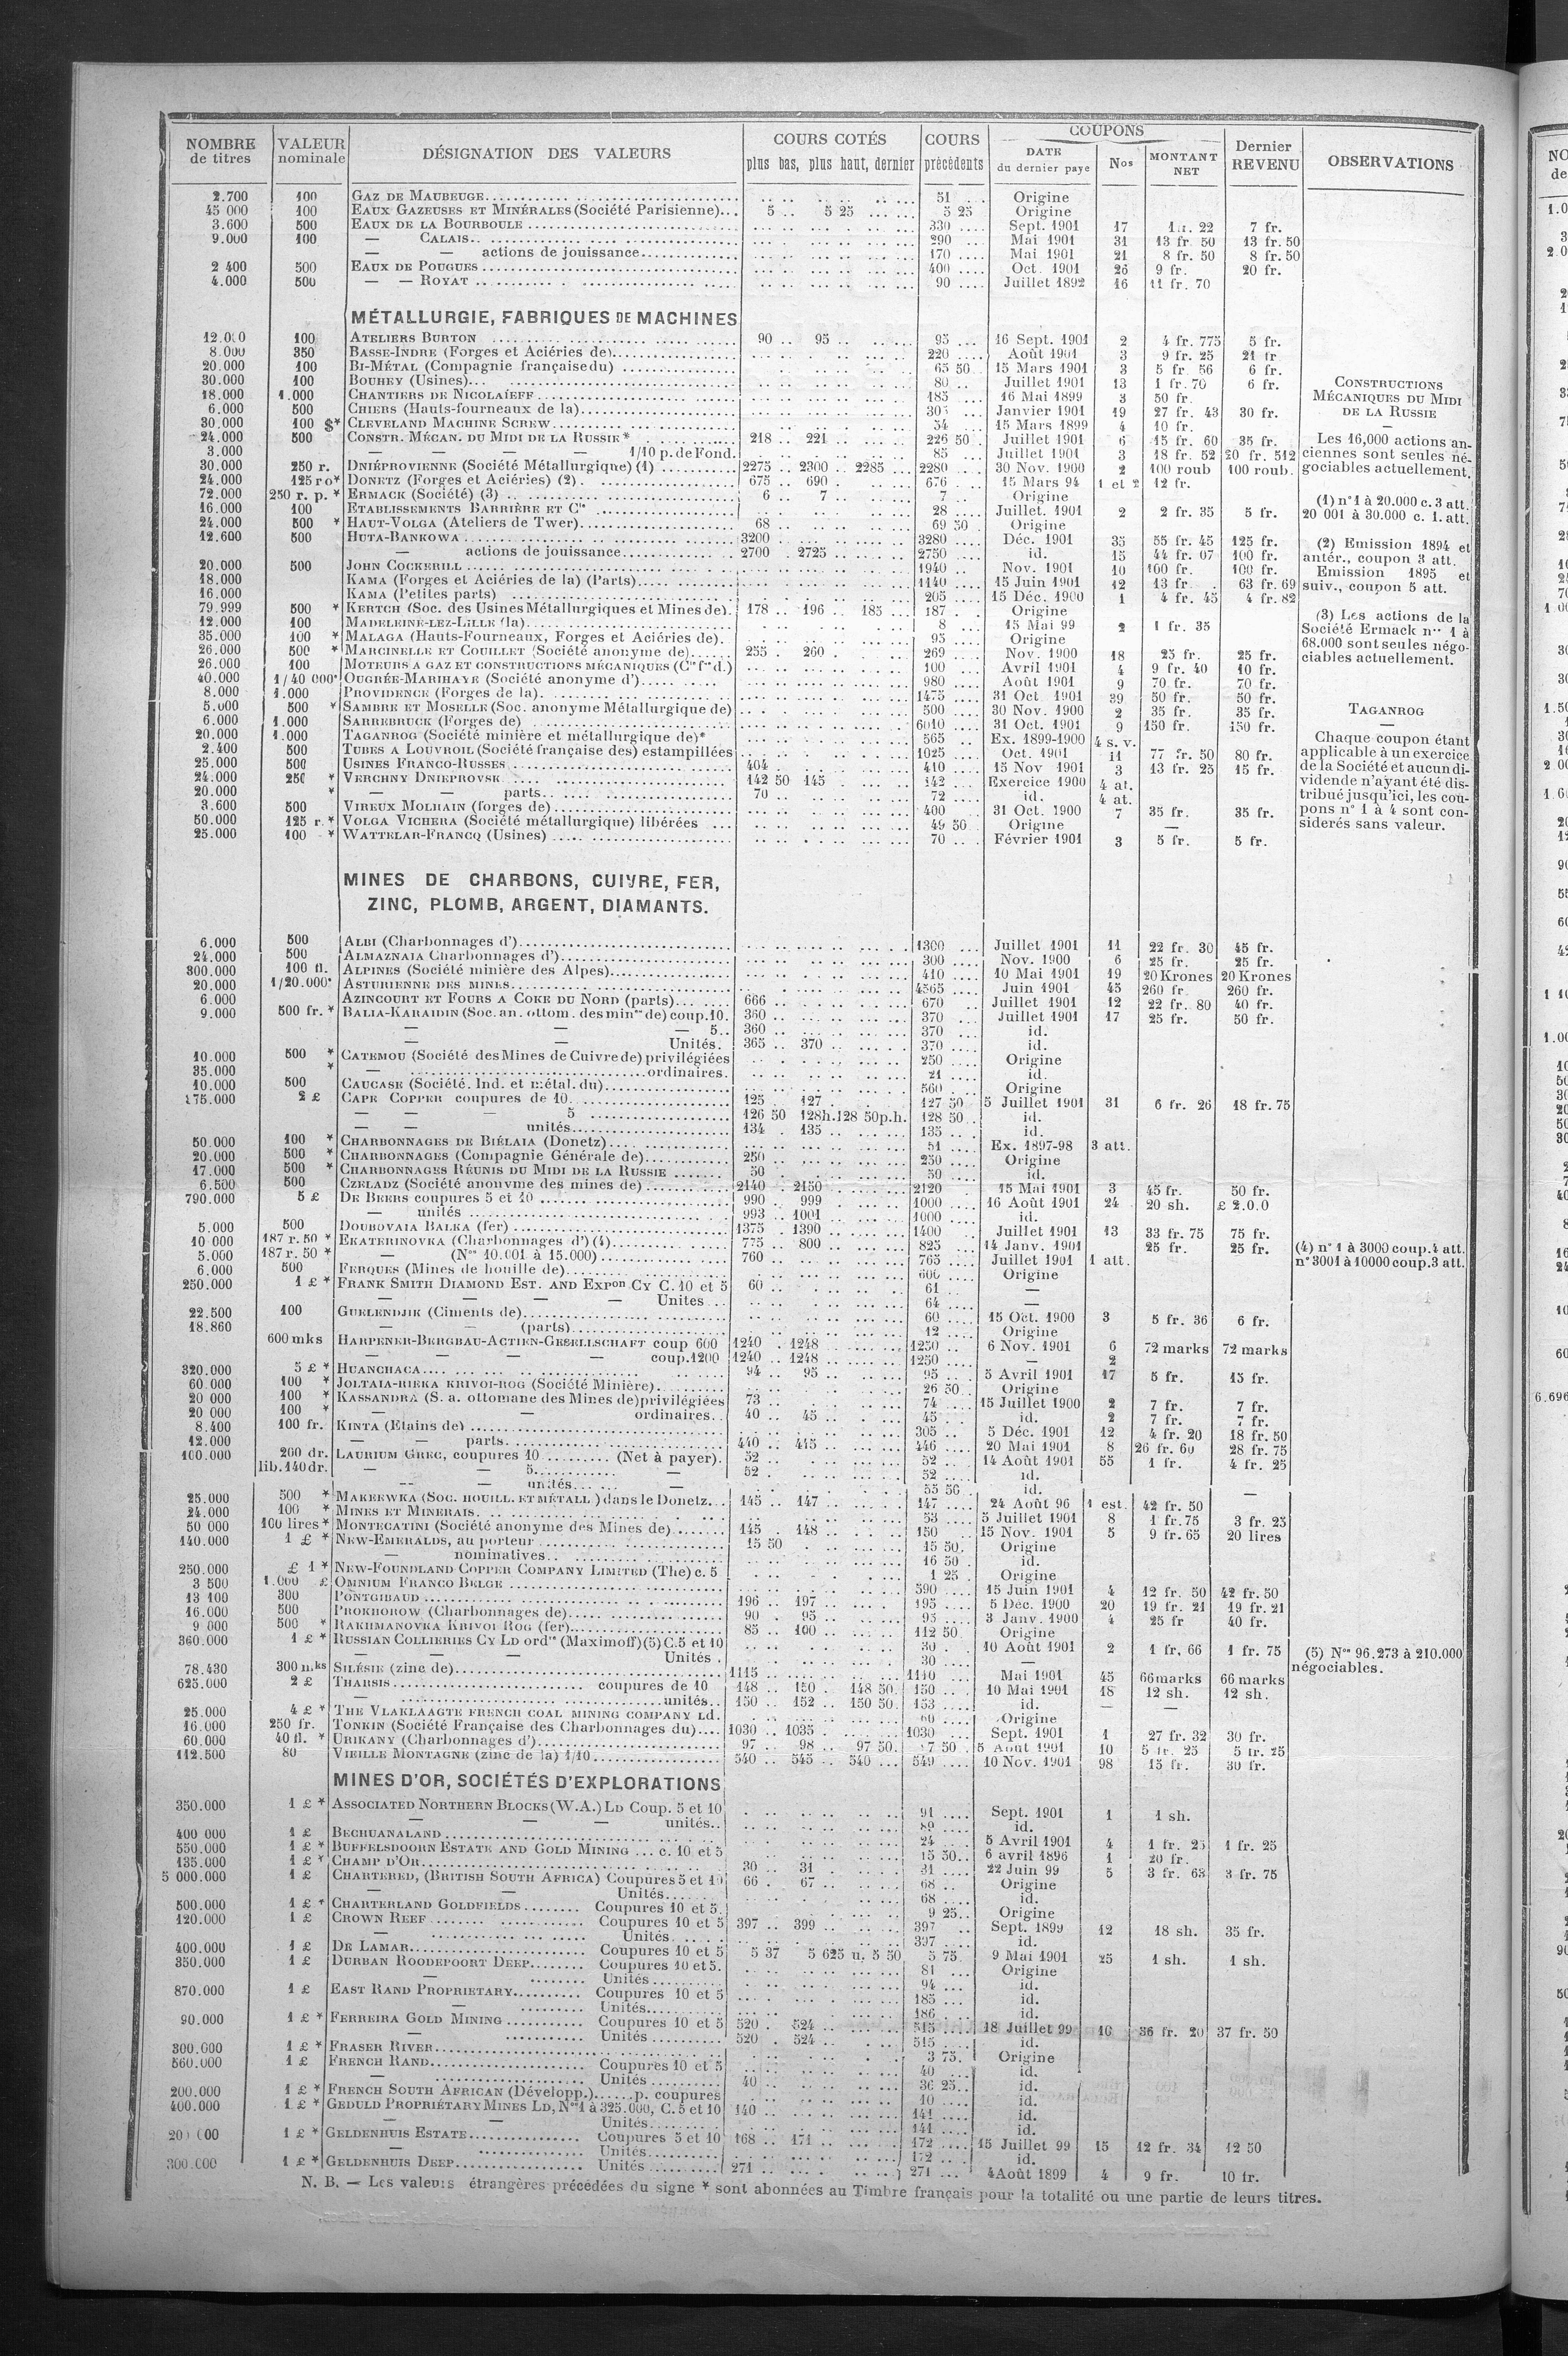 NOMBRE de titres | VALEUR nominale | DÉSIGNATION DES VALEURS | COURS COTÉS plus bas, plus haut, dernier | COURS précédents | COUPONS DATE du dernier paye | Nos | MONTANT NET | Dernier REVENU | OBSERVATIONS
2.700 100 GAZ DE MAUBEUGE 51 Origine
45 000 100 EAUX GAZEUSES ET MINÉRALES (Société Parisienne) 5 .. 5 25 5 25 Origine
3.600 500 EAUX DE LA BOURBOULE 330 Sept. 1901 17 22 7 fr.
9.000 100 — CALAIS 290 Mai 1901 31 13 fr. 50 13 fr. 50
— — actions de jouissance 170 Mai 1901 21 8 fr. 50 8 fr. 50
2 400 500 EAUX DE POUGUES 400 Oct. 1901 26 9 fr. 20 fr.
4.000 500 — — ROYAT 90 Juillet 1892 16 11 fr. 70
MÉTALLURGIE, FABRIQUES DE MACHINES
12.000 100 ATELIERS BURTON 90 .. 95 .. 95 16 Sept. 1901 2 4 fr. 775 5 fr.
8.000 350 BASSE-INDRE (Forges et Aciéries de) 220 Août 1901 3 9 fr. 25 21 fr
20.000 100 BI-MÉTAL (Compagnie française du) 65 50 15 Mars 1901 3 5 fr. 56 6 fr.
30.000 100 BOUHEY (Usines) 80 Juillet 1901 13 1 fr. 70 6 fr.
18.000 1.000 CHANTIERS DE NICOLAÍEFF 485 16 Mai 1899 3 50 fr.
6.000 500 CHIERS (Hauts-fourneaux de la) 305 Janvier 1901 19 27 fr. 43 30 fr.
30.000 100 $* CLEVELAND MACHINE SCREW 54 15 Mars 1899 4 10 fr.
24.000 500 CONSTR. MÉCAN. DU MIDI DE LA RUSSIE* 218 .. 221 .. 226 50 Juillet 1901 6 15 fr. 60 35 fr.
3.000 — — — — 1/10 p. de Fond. 85 Juillet 1901 3 18 fr. 52 20 fr. 512
30.000 250 r. DNIÉPROVIENNE (Société Métallurgique) (1) 2275 .. 2300 .. 2285 2280 30 Nov. 1900 2 100 roub 100 roub.
24.000 125 ro* DONETZ (Forges et Aciéries) (2) 675 .. 690 . 676 15 Mars 94 1 et 2 12 fr.
72.000 250 r. p. * ERMACK (Société) (3) 6 7 .. 7 Origine
16.000 100 ETABLISSEMENTS BARRIÈRE ET Cie 28 Juillet. 1901 2 2 fr. 35 5 fr.
24.000 500 * HAUT-VOLGA (Ateliers de Twer) 68 69 50 Origine
12.600 500 HUTA-BANKOWA 3200 3280 Déc. 1901 35 55 fr. 45 125 fr.
— actions de jouissance 2700 . 2725 2750 id. 15 44 fr. 07 100 fr.
20.000 500 JOHN COCKERILL 1940 Nov. 1901 10 100 fr. 100 fr.
18.000 KAMA (Forges et Aciéries de la) (Parts) 1140 15 Juin 1901 12 13 fr . 63 fr. 69
16.000 KAMA (Petites parts) 205 15 Déc. 1900 1 4 fr. 45 4 fr. 82
79.999 500 * KERTCH (Soc. des Usines Métallurgiques et Mines de). 178 .. 196 .. 185 187 Origine
12.000 100 MADELEINE-LEZ-LILLE (la) 8 15 Mai 99 2 1 fr. 35
35.000 100 * MALAGA (Hauts-Fourneaux, Forges et Aciéries de). 95 Origine
26.000 500 * MARCINELLE ET COUILLET (Société anonyme de) 255 . 260 . 269 Nov. 1900 18 25 fr. 25 fr.
26.000 100 MOTEURS A GAZ ET CONSTRUCTIONS MÉCANIQUES (Cie fse d.) 100 Avril 1901 4 9 fr. 40 10 fr.
40.000 1/40 000e OUGRÉE-MARIHAYE (Société anonyme d') 980 Août 1901 9 70 fr. 70 fr.
8.000 1.000 PROVIDENCE (Forges de la) 1475 31 Oct. 1901 39 50 fr. 50 fr.
5.000 500 * SAMBRE ET MOSELLE (Soc. anonyme Métallurgique de) 500 30 Nov. 1900 2 35 fr. 35 fr.
6.000 1.000 SARREBRUCK (Forges de) 6010 31 Oct. 1901 9 150 fr. 150 fr.
20.000 1.000 TAGANROG (Société minière et métallurgique de)* 565 Ex. 1899-1900 4 s. v.
2.400 500 TUBES A LOUVROIL (Société française des) estampillées 1025 Oct. 1901 11 77 fr. 50 80 fr.
25.000 500 USINES FRANCO-RUSSES 404 410 15 Nov 1901 3 13 fr. 25 15 fr.
24.000 250 * VERCHNY DNIEPROVSK 142 50 145 142 Exercice 1900 4 at.
20.000 * — — parts 70 72 id. 4 at.
3.600 500 VIREUX MOLHAIN (forges de) 400 31 Oct. 1900 7 35 fr. 35 fr.
50.000 125 r. * VOLGA VICHERA (Société métallurgique) libérées 49 50 Origine —
25.000 100 * WATTELAR-FRANCQ (Usines) 70 Février 1901 3 5 fr. 5 fr.
CONSTRUCTIONS
MÉCANIQUES DU MIDI
DE LA RUSSIE
—
Les 16,000 actions an-
ciennes sont seules né-
gociables actuellement.
(1) n° 1 à 20.000 c. 3 att.
20 001 à 30.000 c. 1. att.
(2) Emission 1894 et
antér., coupon 3 att.
Emission 1895 et
suiv., coupon 5 att.
(3) Les actions de la
Société Ermack nos 1 à
68.000 sont seules négo-
ciables actuellement.
TAGANROG
—
Chaque coupon étant
applicable à un exercice
de la Société et aucun di-
vidende n'ayant été dis-
tribué jusqu'ici, les cou-
pons n° 1 à 4 sont con-
siderés sans valeur.
MINES DE CHARBONS, CUIVRE, FER,
ZINC, PLOMB, ARGENT, DIAMANTS.
6.000 500 ALBI (Charbonnages d') 1300 Juillet 1901 11 22 fr. 30 45 fr.
24.000 500 ALMAZNAIA Charbonnages d') 300 Nov. 1900 6 25 fr. 25 fr.
300.000 100 fl. ALPINES (Société minière des Alpes) 410 10 Mai 1901 19 20 Krones 20 Krones
20.000 1/20.000e ASTURIENNE DES MINES 4565 Juin 1901 45 260 fr. 260 fr.
6.000 AZINCOURT ET FOURS A COKE DU NORD (parts) 666 670 Juillet 1901 12 22 fr. 80 40 fr.
9.000 500 fr. * BALIA-KARAIDIN (Soc. an. ottom. des mines de) coup. 10. 360 370 Juillet 1901 17 25 fr. 50 fr.
— — — 5 360 370 id.
— — Unités. 365 .. 370 370 id.
10.000 500 * CATEMOU (Société des Mines de Cuivre de) privilégiées 250 Origine
35.000 * — ordinaires. 21 id.
10.000 500 CAUCASE (Société. Ind. et métal. du) 560 Origine
175.000 2 £ CAPE COPPER coupures de 10 125 . 127 127 50 5 Juillet 1901 31 6 fr. 26 18 fr. 75
— — — 5 126 50 128h. 128 50p.h. 128 50 id.
— — unités 134 . 135 135 id.
50.000 100 * CHARBONNAGES DE BIÉLAIA (Donetz) 51 Ex. 1897-98 3 att.
20.000 500 * CHARBONNAGES (Compagnie Générale de) 250 250 Origine
17.000 500 * CHARBONNAGES RÉUNIS DU MIDI DE LA RUSSIE 50 50 id.
6.500 500 CZELADZ (Société anonyme des mines de) 2140 . 2150 2120 15 Mai 1901 3 45 fr. 50 fr.
790.000 5 £ DE BEERS coupures 5 et 10 990 . 999 1000 16 Août 1901 24 20 sh. £ 2.0.0
— unités 993 . 1001 1000 id.
5.000 500 DOUBOVAIA BALKA (fer) 1375 . 1390 1400 Juillet 1901 13 33 fr. 75 75 fr.
10 000 187 r. 50 * EKATERINOVKA (Charbonnages d') (4) 775 .. 800 825 14 Janv. 1901 25 fr. 25 fr. (4) n° 1 à 3000 coup. 4 att.
5.000 187 r. 50 * — (Nos 10.001 à 15.000) 760 765 Juillet 1901 1 att. n° 3001 à 10000 coup. 3 att.
6.000 500 FERQUES (Mines de houille de) 600 Origine
250.000 1 £ * FRANK SMITH DIAMOND EST. AND EXPon CY C. 10 et 5 60 61 —
— — — — Unites 64 —
22.500 100 GUELENDJIK (Ciments de) 60 15 Oct. 1900 3 5 fr. 36 6 fr.
18.860 — — (parts) 12 Origine
600 mks HARPENER-BERGBAU-ACTIEN-GESELLSCHAFT coup 600 1240 . 1248 1250 6 Nov. 1901 6 72 marks 72 marks
— — — — coup. 1200 1240 .. 1248 1250 — 2
320.000 5 £ * HUANCHACA 94 .. 95 95 5 Avril 1901 17 5 fr. 15 fr.
60.000 100 * JOLTAIA-RIEKA KRIVOI-ROG (Société Minière) 26 50 Origine
20 000 100 * KASSANDRA (S. a. ottomane des Mines de) privilégiées 73 74 15 Juillet 1900 2 7 fr. 7 fr.
20 000 100 * — — ordinaires 40 .. 45 45 id. 2 7 fr. 7 fr.
8.400 100 fr. KINTA (Etains de) 305 5 Déc. 1901 12 4 fr. 20 18 fr. 50
12.000 — — parts 440 .. 445 446 20 Mai 1901 8 26 fr. 60 28 fr. 75
100.000 200 dr. LAURIUM GREC, coupures 10 (Net à payer). 52 52 14 Août 1901 55 1 fr. 4 fr. 25
lib. 140 dr. — — 5 — 52 52 id.
— — unités — 55 50 id.
25.000 500 * MAKEEWKA (SOC. HOUILL. ET MÉTALL ) dans le Donetz 145 .. 147 147 24 Août 96 1 est. 42 fr. 50 —
24.000 100 * MINES ET MINERAIS 53 5 Juillet 1901 8 1 fr. 75 3 fr. 25
50 000 100 lires * MONTECATINI (Société anonyme des Mines de) 145 . 148 150 15 Nov. 1901 5 9 fr. 65 20 lires
140.000 1 £ * NEW-EMERALDS, au porteur 15 50 15 50 Origine
— nominatives 16 50 id.
250.000 £ 1 * NEW-FOUNDLAND COPPER COMPANY LIMITED (The) c. 5 1 25 Origine
3 500 1.000 £ OMNIUM FRANCO BELGE 590 15 Juin 1901 4 12 fr. 50 42 fr. 50
13 100 300 PONTGIBAUD 196 .. 197 195 5 Déc. 1900 20 19 fr. 21 19 fr. 21
16.000 500 PROKHOROW (Charbonnages de) 90 . 95 95 3 Janv. 1900 4 25 fr 40 fr.
9 000 500 * RAKHMANOVKA KRIVOI ROG (fer) 85 .. 100 112 50 Origine
360.000 1 £ * RUSSIAN COLLIERIES CY LD ordres (Maximoff) (5) C. 5 et 10 30 10 Août 1901 2 1 fr. 66 1 fr. 75 (5) Nos 96.273 à 210.000
— — — Unités 30 — négociables.
78.430 300 mks SILÉSIE (zinc de) 1115 1110 Mai 1901 45 66 marks 66 marks
625.000 2 £ THARSIS coupures de 10 148 .. 150 . 148 50 150 10 Mai 1901 18 12 sh. 12 sh.
— unités 150 .. 152 .. 150 50 153 id. — —
25.000 4 £ * THE VLAKLAAGTE FRENCH COAL MINING COMPANY LD. 60 Origine
16.000 250 fr. TONKIN (Société Française des Charbonnages du) 1030 .. 1035 1030 Sept. 1901 1 27 fr. 32 30 fr.
60.000 40 fl. * URIKANY (Charbonnages d') 97 .. 98 .. 97 50 7 50 5 Août 1901 10 5 fr. 25 5 fr. 25
112.500 80 VIEILLE MONTAGNE (zinc de la) 1/10 540 .. 545 .. 540 549 10 Nov. 1901 98 15 fr. 30 fr.
MINES D'OR, SOCIÉTÉS D'EXPLORATIONS
350.000 1 £ * ASSOCIATED NORTHERN BLOCKS (W.A.) LD Coup. 5 et 10 91 Sept. 1901 1 1 sh.
— — — unités 89 id.
400 000 1 £ BECHUANALAND 24 5 Avril 1901 4 1 fr. 25 1 fr. 25
550.000 1 £ * BUFFELSDOORN ESTATE AND GOLD MINING c. 10 et 5 15 50 6 avril 1896 1 20 fr.
135.000 1 £ * CHAMP D'OR 30 .. 31 31 22 Juin 99 5 3 fr. 63 3 fr. 75
5 000.000 1 £ CHARTERED, (BRITISH SOUTH AFRICA) Coupures 5 et 10 66 . 67 68 Origine
— — Unités 68 id.
500.000 1 £ * CHARTERLAND GOLDFIELDS Coupures 10 et 5. 9 25 Origine
120.000 1 £ CROWN REEF Coupures 10 et 5 397 .. 399 397 Sept. 1899 12 18 sh. 35 fr.
— Unités 397 id.
400.000 1 £ DE LAMAR Coupures 10 et 5 5 37 5 625 u. 5 50 5 75 9 Mai 1901 25 1 sh. 1 sh.
350.000 1 £ DURBAN ROODEPOORT DEEP Coupures 10 et 5. 81 Origine
— Unités 94 id.
870.000 1 £ EAST RAND PROPRIETARY Coupures 10 et 5 185 id.
— Unités 186 id.
90.000 1 £ * FERREIRA GOLD MINING Coupures 10 et 5 520 . 524 515 18 Juillet 99 16 36 fr. 20 37 fr. 50
— Unités 520 . 524 515 id.
300.000 1 £ * FRASER RIVER 3 75 Origine
560.000 1 £ FRENCH RAND Coupures 10 et 5 40 id.
— Unités 40 36 25 id.
200.000 1 £ * FRENCH SOUTH AFRICAN (Développ.) p. coupures 10 id.
400.000 1 £ * GEDULD PROPRIÉTARY MINES LD, Nos 1 à 325.000, C. 5 et 10 140 141 id.
— — Unités 141 id.
1 £ * GELDENHUIS ESTATE Coupures 5 et 10 168 .. 171 172 15 Juillet 99 15 12 fr. 34 12 50
— Unités 172 id.
300.000 1 £ * GELDENHUIS DEEP Unités 271 271 4 Août 1899 4 9 fr. 10 fr.
N. B. — Les valeurs étrangères précédées du signe * sont abonnées au Timbre français pour la totalité ou une partie de leurs titres.